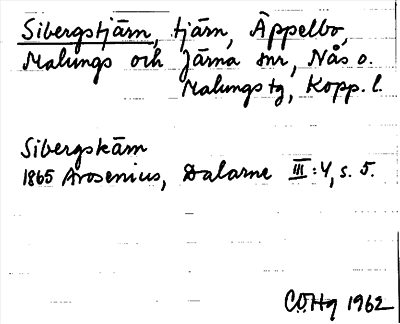 Sibergstjärn, tjärn, Äppelbo,
Malungs och Järna snr, Nås o.
Malungs tg, Kopp. l.
Sibergskärn
1865 Arosenius, Dalarne III:4, s. 5.
C.O.Hg 1962